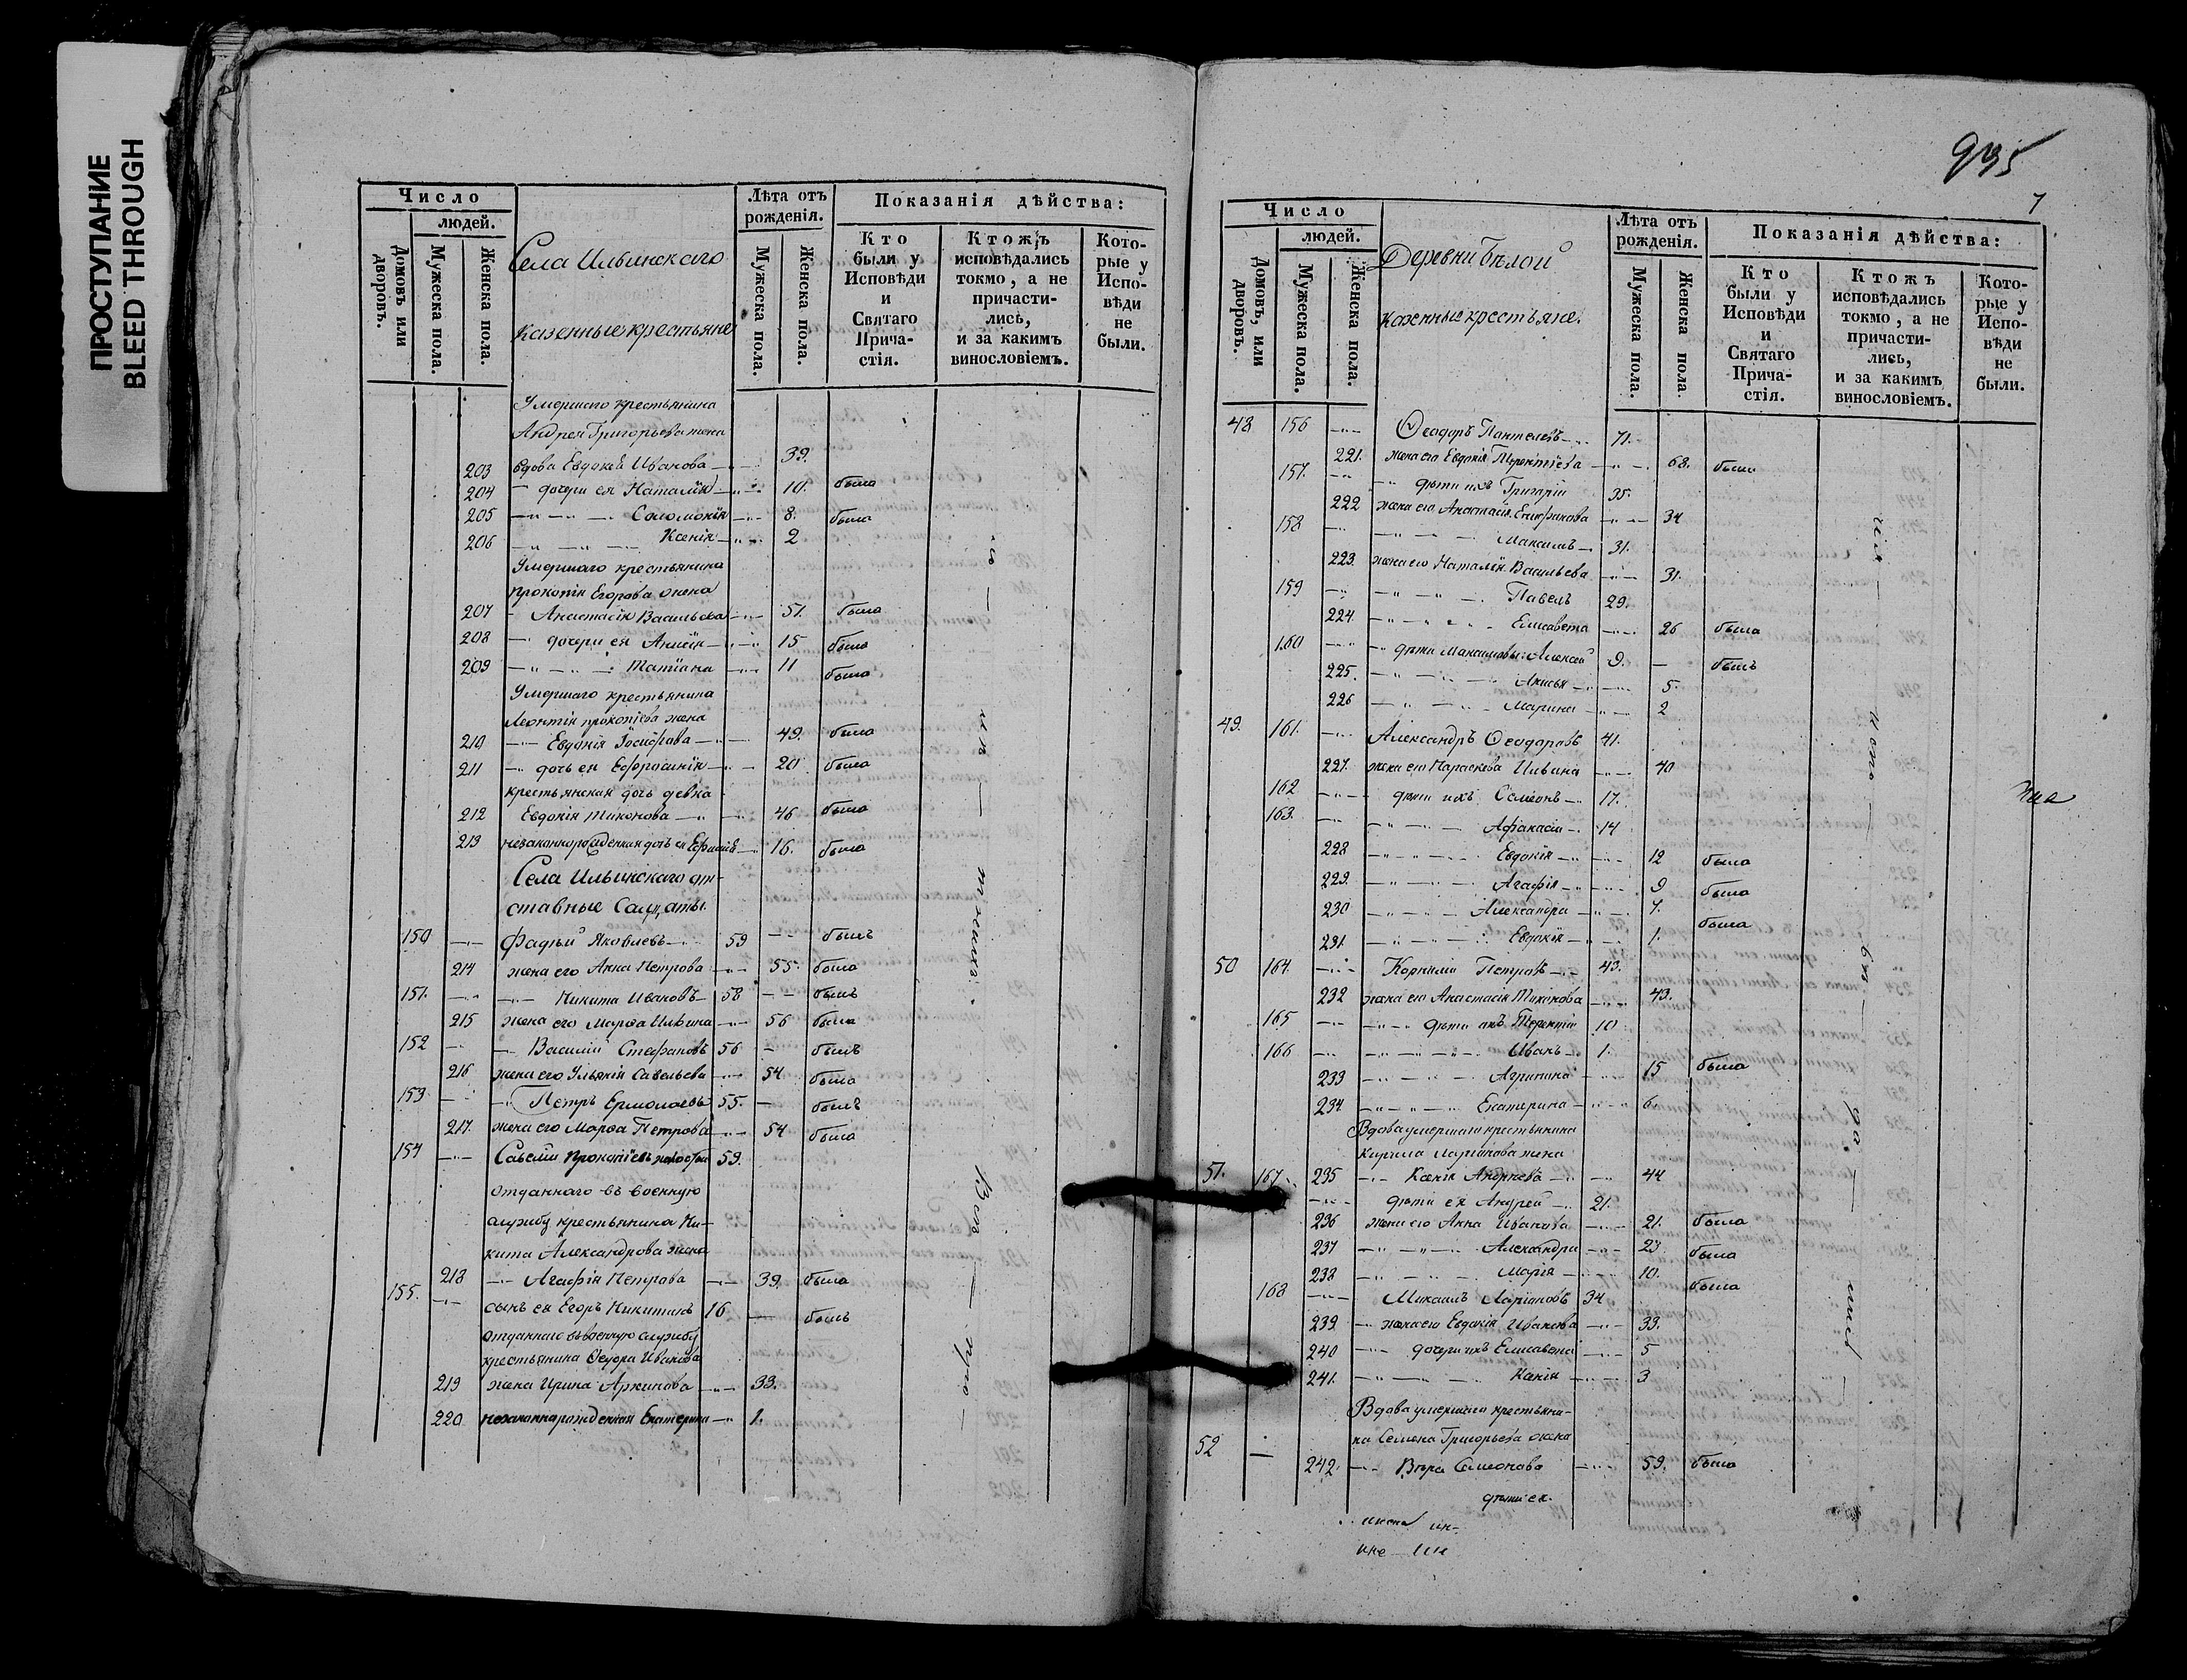 ПРОСТУПАНИЕ
BLEED THROUGH
Число
людей.
Домовъ или дворовъ.
Мужеска пола.
Женска пола.
Села Ильинскаго
казенные крестьяне
Лѣта отъ рожденія.
Мужеска пола.
Женска пола.
Показанія дѣйства:
Кто были у Исповѣди и Святаго Причастія.
Ктожъ исповѣдались токмо, а не причастились, и за какимъ винословіемъ.
Которые у Исповѣди не были.
Умершаго крестьянина
Андрея Григорьева жена
203 вдова Евдокія Иванова 39.
204 дочери ея Наталія 10. была
205 Соломонія 8. была
206 Ксенія 2
Умершаго крестьянина
Прокопія Егорова жена
207 Анастасія Васильева 51. была
208 дочери ея Анисія 15 была
209 Татіана 11 была
Умершаго крестьянина
Леонтія Прокопіева жена
210 Евдокія Іосифова 49. была
211 дочь ея Ефросинія 20. была
крестьянская дочь девка
212 Евдокія Тихонова 46 была
213 незаконнорожденная дочь ея 16. была
Села Ильинскаго от-
ставные Солдаты.
150 Фадѣй Яковлевъ 59 былъ
214 жена его Анна Петрова 55. была
151. Никита Ивановъ 58 былъ
215 жена его Марѳа Ильина 56 была
152 Василій Стефановъ 56 былъ
216 жена его Ульянія Савельева 54 была
153 Петръ Ермолаевъ 55. былъ
217. жена его Марѳа Петрова 54 была
154 Савелій Прокопіевъ холостой 59.
отданнаго въ военную
службу крестьянина Ни-
кита Александрова жена
218 Агафія Петрова 39. была
155. сынъ ея Егоръ Никитинъ 16 былъ
отданнаго въ военную службу
крестьянина Ѳедора Иванова
219 жена Ирина 33.
220 незаконнорожденная Екатерина 1.
935
7
Число
людей.
Домовъ, или дворовъ.
Мужеска пола.
Женска пола.
Деревни Бѣлой
казенные крестьяне.
Лѣта отъ рожденія.
Мужеска пола.
Женска пола.
Показанія дѣйства:
Кто были у Исповѣди и Святаго Причастія.
Ктожъ исповѣдались токмо, а не причастились, и за какимъ винословіемъ.
Которые у Исповѣди не были.
48 156 Ѳеодоръ Пантелеевъ 71.
221. жена его Евдокія Терентіева 68. была
157. дѣти ихъ Григорій 35.
222 жена его Анастасія 34
158 Максимъ 31.
223. жена его Наталія Васильева 31.
159 Павелъ 29.
224. Елисавета 26 была
160 дѣти Максимовы: Алексей 9. былъ
225. Анисья 5.
226 Марина 2
49. 161. Александръ Ѳеодоровъ 41.
227. жена его Параскева Ильина 40
162 дѣти ихъ Семеонъ 17.
163. Афанасій 14
228 Евдокія 12 была
229. Агафія 9 была
230 Александра 7. была
231. Евдокія 1.
50 164. Корнилій Петровъ 43.
232 жена его Анастасія Тихонова 43.
165 дѣти ихъ Терентій 10
166 Иванъ 1.
233 Агрипина 15 была
234 Екатерина 6.
Вдова умершаго крестьянина
Кирила Ларіонова жена
51. 167. 235 Ксенія Андреева 44
дѣти ея Андрей 21.
236 жена его Анна Иванова 21. была
237 Александра 23 была
238 Марія 10. была
168 Михаилъ Ларіоновъ 34
239. жена его Евдокія Иванова 33.
240 дочери ихъ Елисавета 5
241. Ксенія 3
Вдова умершаго крестьяни-
на Семена Григорьева жена
52 242. Вѣра Семонова 59. была
дѣти ея